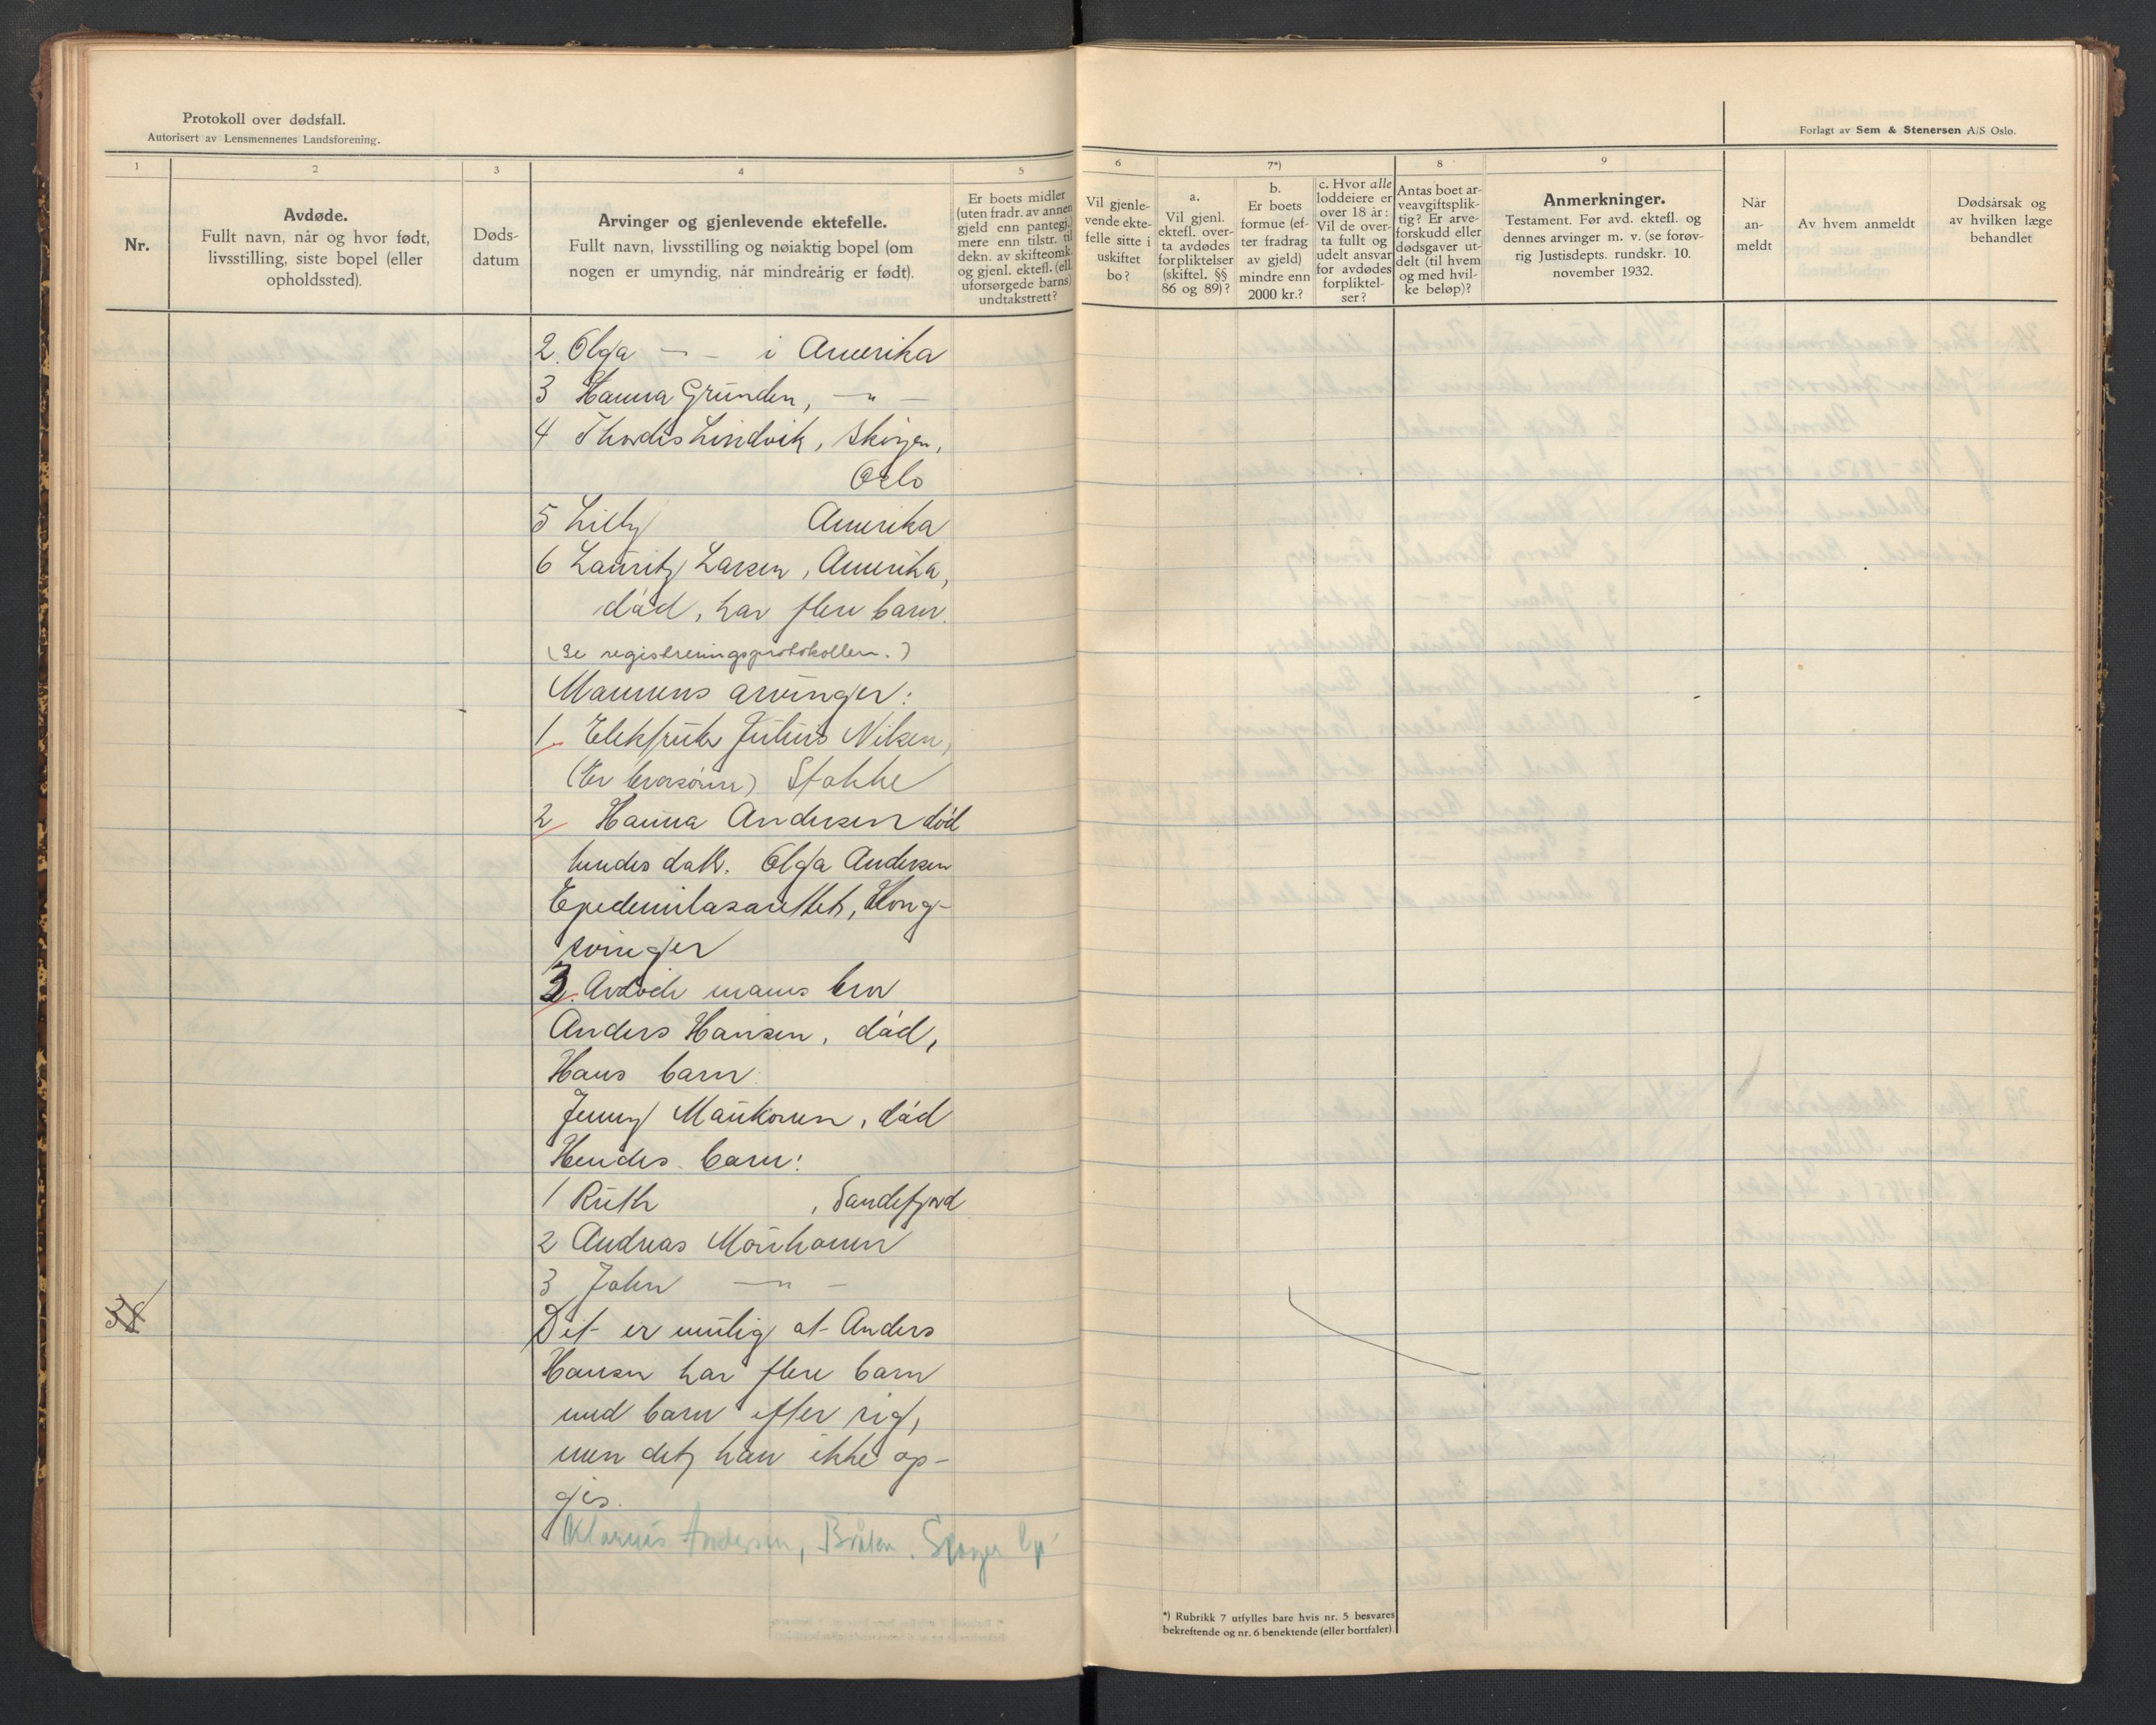 Protokoll over dødsfall.
Autorisert av Lensmennenes Landsforening.
Forlagt av Sem & Stenersen A/S Oslo.
1
2
3
4
5
6
7*)
8
9
Nr.
Avdøde.
Fullt navn, når og hvor født,
livsstilling, siste bopel (eller
opholdssted).
Døds-
datum
Arvinger og gjenlevende ektefelle.
Fullt navn, livsstilling og nøiaktig bopel (om
nogen er umyndig, når mindreårig er født).
Er boets midler
(uten fradr. av annen
gjeld enn pantegj.)
mere enn tilstr. til
dekn. av skifteomk.
og gjenl. ektefl. (ell.
uforsørgede barns)
undtakstrett?
Vil gjenle-
vende ekte-
felle sitte i
uskiftet
bo?
a.
Vil gjenl.
ektefl. over-
ta avdødes
forpliktelser
(skiftel. §§
86 og 89)?
b.
Er boets
formue (ef-
ter fradrag
av gjeld)
mindre enn
2000 kr.?
c. Hvor alle
loddeiere er
over 18 år:
Vil de over-
ta fullt og
udelt ansvar
for avdødes
forpliktel-
ser?
Antas boet ar-
veavgiftsplik-
tig? Er arve-
forskudd eller
dødsgaver ut-
delt (til hvem
og med hvil-
ke beløp)?
Anmerkninger.
Testament. Før avd. ektefl. og
dennes arvinger m. v. (se forøv-
rig Justisdepts. rundskr. 10.
november 1932.
Når
an-
meldt
Av hvem anmeldt
Dødsårsak og
av hvilken læge
behandlet
2. Olga — - i Amerika
3 Hanna Grunden, — " —
4 Thordis Lindvik, Skøyen,
Oslo
5 Lilly Amerika
6 Lauritz Larsen, Amerika,
død, har flere barn.
(Se registreringsprotokollen.)
Mannens arvinger:
1. Julius Nilsen,
(Er brorsønn) Stokke
2 Hanna Andersen død
hendes datt. Olga Andersen
Epedemilasarettet, Kong-
svinger
3. Avdøde manns bror
Anders Hansen, død,
Hans barn:
Jenny Maukonen, død
Hendes barn:
1 Ruth , Sandefjord
2 Andreas
3 John — " —
38
Det er mulig at Anders
Hansen har flere barn
med barn efter sig,
men det kan ikke op-
gis.
Klarius Andersen, Bråten.
*) Rubrikk 7 utfylles bare hvis nr. 5 besvares
bekreftende og nr. 6 benektende (eller bortfaler)